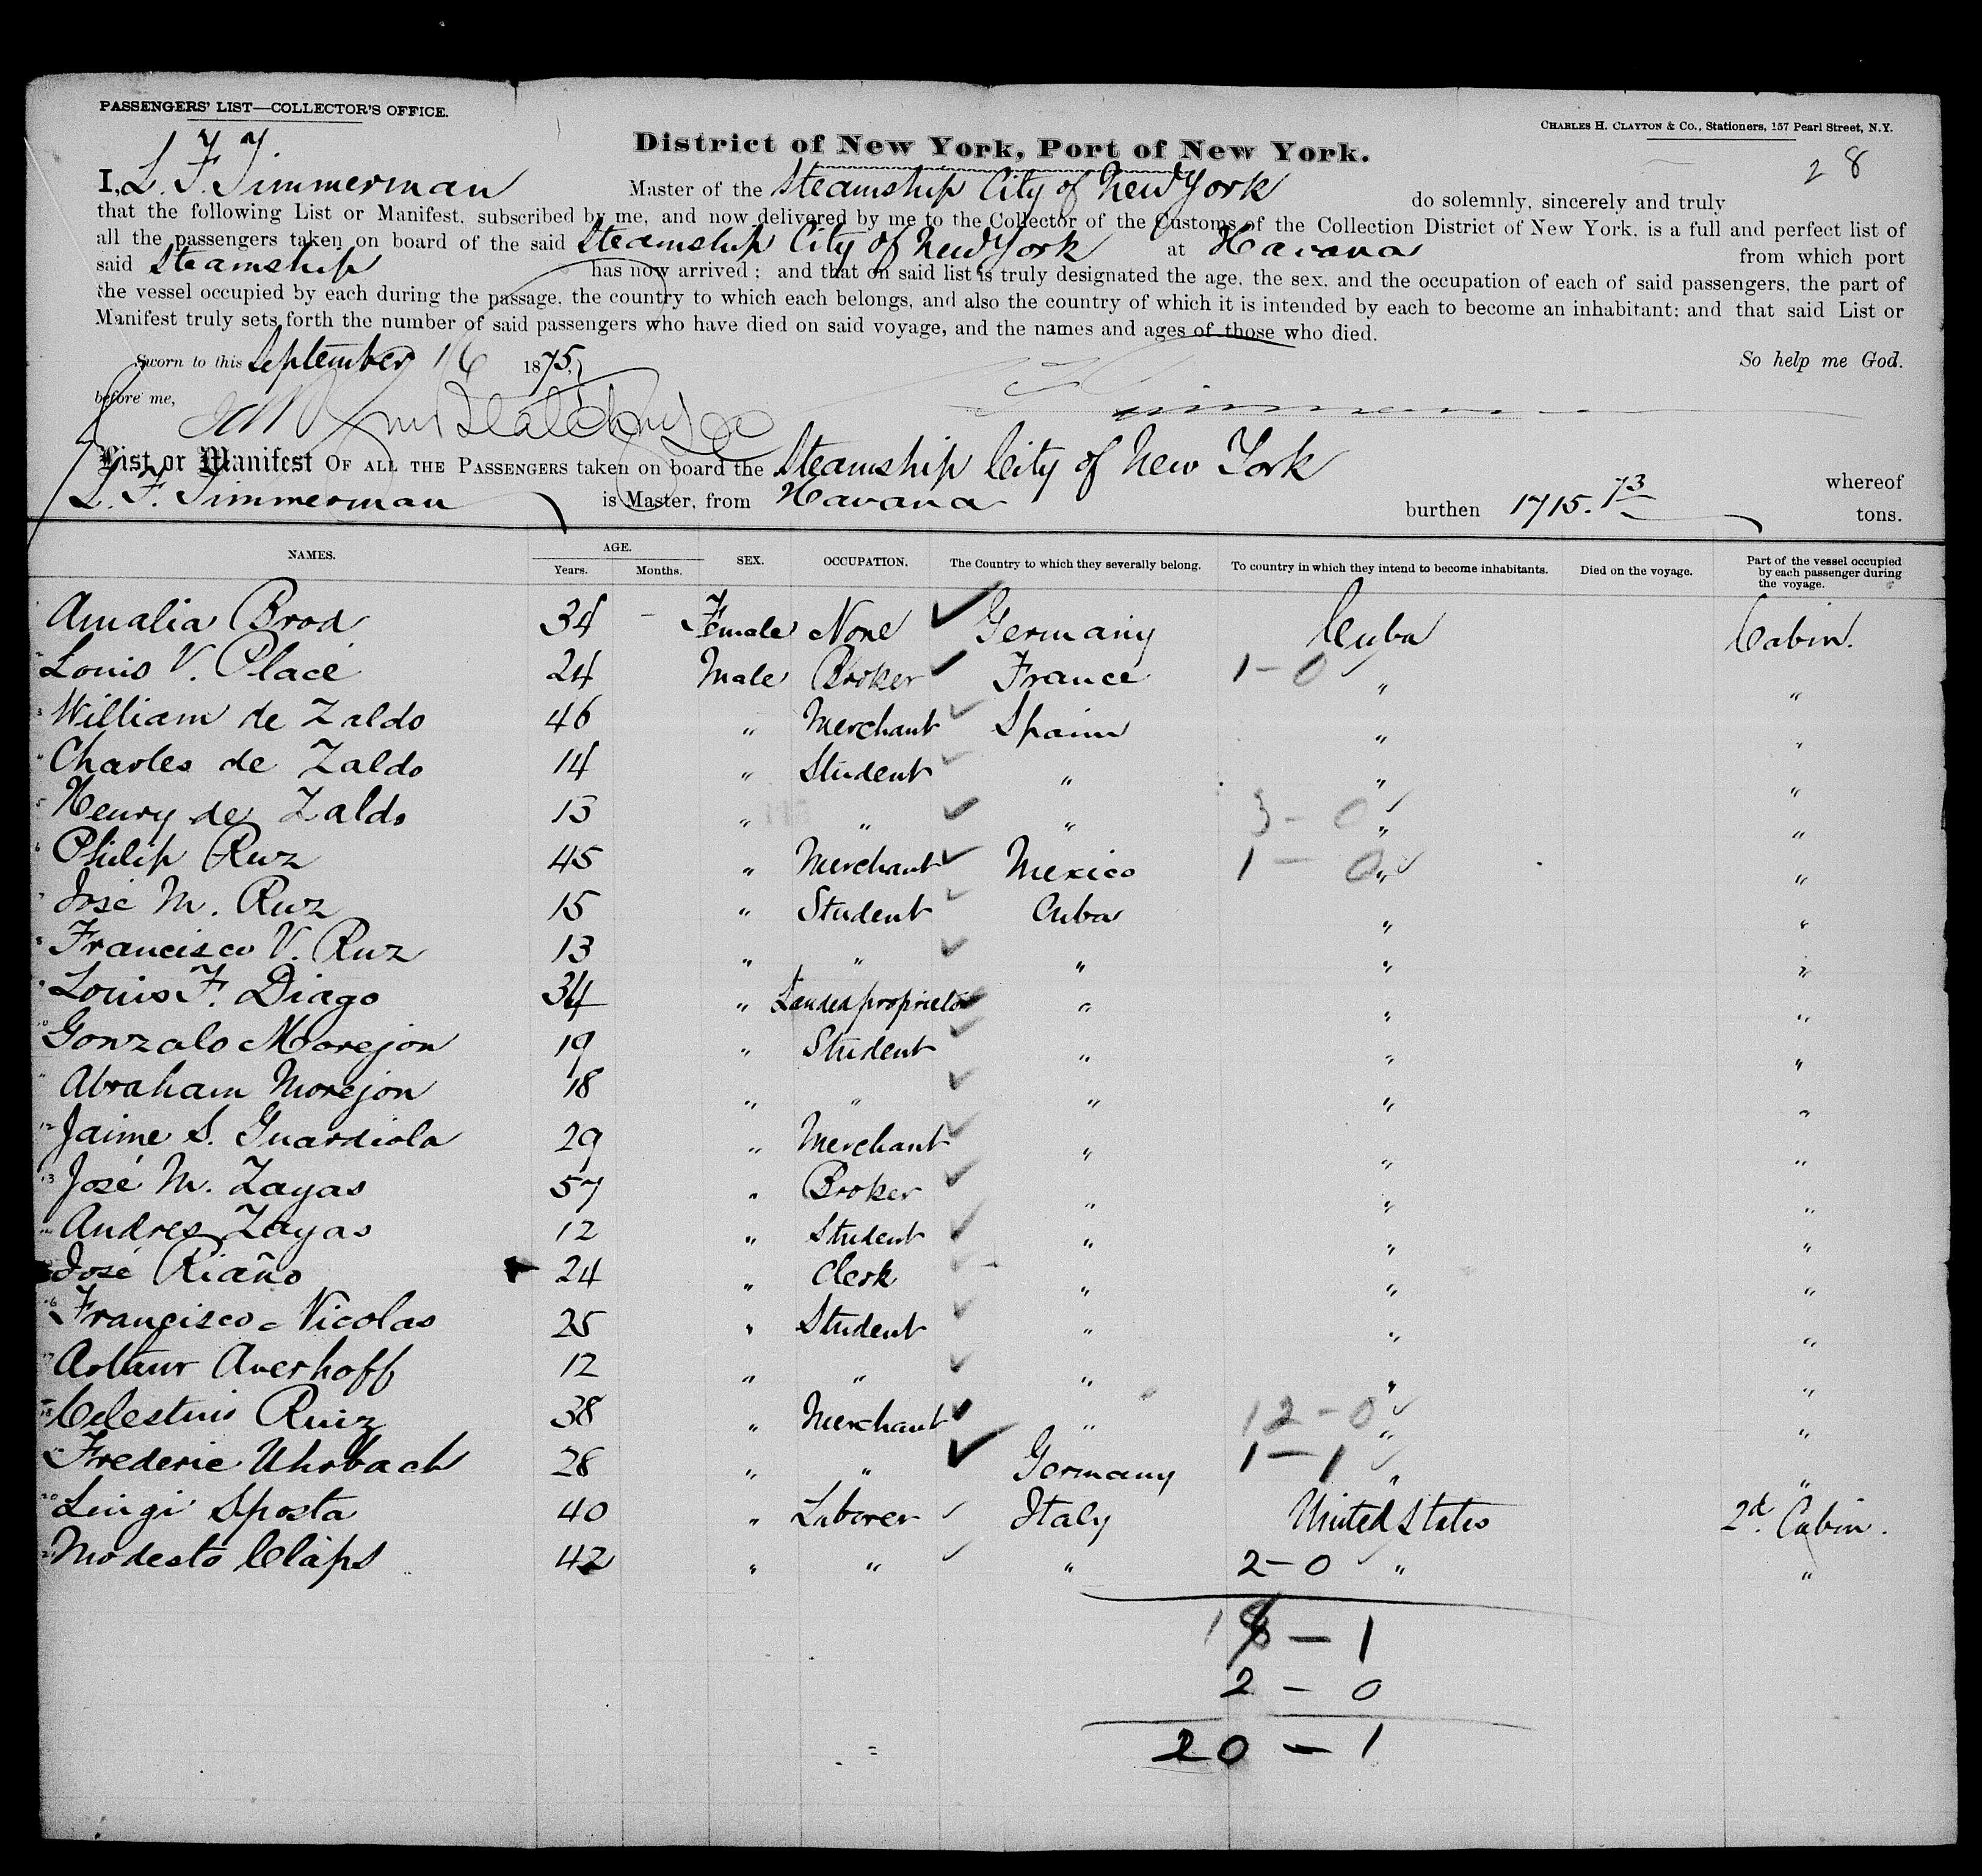 PASSENGERS' LIST—COLLECTOR'S OFFICE.
CHARLES H. CLAYTON & CO., Stationers, 157 Pearl Street, N.Y.
District of New York, Port of New York.
28
I, L. F. Timmerman Master of the Steamship City of New York do solemnly, sincerely and truly
that the following List or Manifest, subscribed by me, and now delivered by me to the Collector of the Customs of the Collection District of New York, is a full and perfect list of
all the passengers taken on board of the said Steamship City of New York at Havana from which port
said Steamship has now arrived; and that on said list is truly designated the age, the sex, and the occupation of each of said passengers, the part of
the vessel occupied by each during the passage, the country to which each belongs, and also the country of which it is intended by each to become an inhabitant; and that said List or
Manifest truly sets forth the number of said passengers who have died on said voyage, and the names and ages of those who died.
Sworn to this September 16 1875, So help me God.
before me,
List or Manifest OF ALL THE PASSENGERS taken on board the Steamship City of New York whereof
L. F. Timmerman is Master, from Havana burthen 1715.73 tons.
NAMES. AGE. Years. Months. SEX. OCCUPATION. The Country to which they severally belong. To country in which they intend to become inhabitants. Died on the voyage. Part of the vessel occupied by each passenger during the voyage.
Amalia Brod 34 – Female None Germany Cuba Cabin.
Louis V. Placé 24 Male Broker France 1-0 " "
William de Zaldo 46 " Merchant Spain " "
Charles de Zaldo 14 " Student " " "
Henry de Zaldo 13 " " " 3-0 " "
Philip Ruz 45 " Merchant Mexico 1-0 " "
José M. Ruz 15 " Student Cuba " "
Francisco V. Ruz 13 " " " " "
Louis F. Diago 34 " Landed proprietor " " "
Gonzalo Morejon 19 " Student " " "
Abraham Morejon 18 " " " " "
Jaime S. Guardiola 29 " Merchant " " "
José M. Zayas 57 " Broker " " "
Andres Zayas 12 " Student " " "
José Riaño 24 " Clerk " " "
Francisco Nicolas 25 " Student " " "
Arthur Averhoff 12 " " " " "
Celestino Ruiz 38 " Merchant " 12-0 " "
Frederic Uhrbach 28 " " Germany 1-1 " "
Luigi Sposta 40 " Laborer Italy United States 2d Cabin.
Modesto Claps 42 " " " 2-0 " "
18-1
2-0
20-1